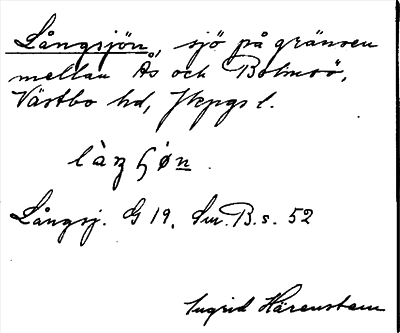 Långsjön, sjö på gränsen
mellan Ås och Bolmsö,
Västbo hd, Jkpgs l.
làŋʃøn.
Långsj. G 19. Sm. B. s. 52
Ingrid Härenstam